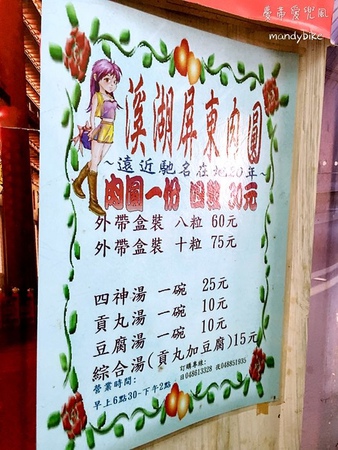 曼蒂愛兜風
mandybike
溪湖屏東肉圓
~遠近馳名在地20年~
肉圓一份 四粒 30元
外帶盒裝 八粒 60元
外帶盒裝 十粒 75元
四神湯 一碗 25元
貢丸湯 一碗 10元
豆腐湯 一碗 10元
綜合湯(貢丸加豆腐)15元
營業時間:
早上6點30-下午2點
訂購專線:
048613328 048851935